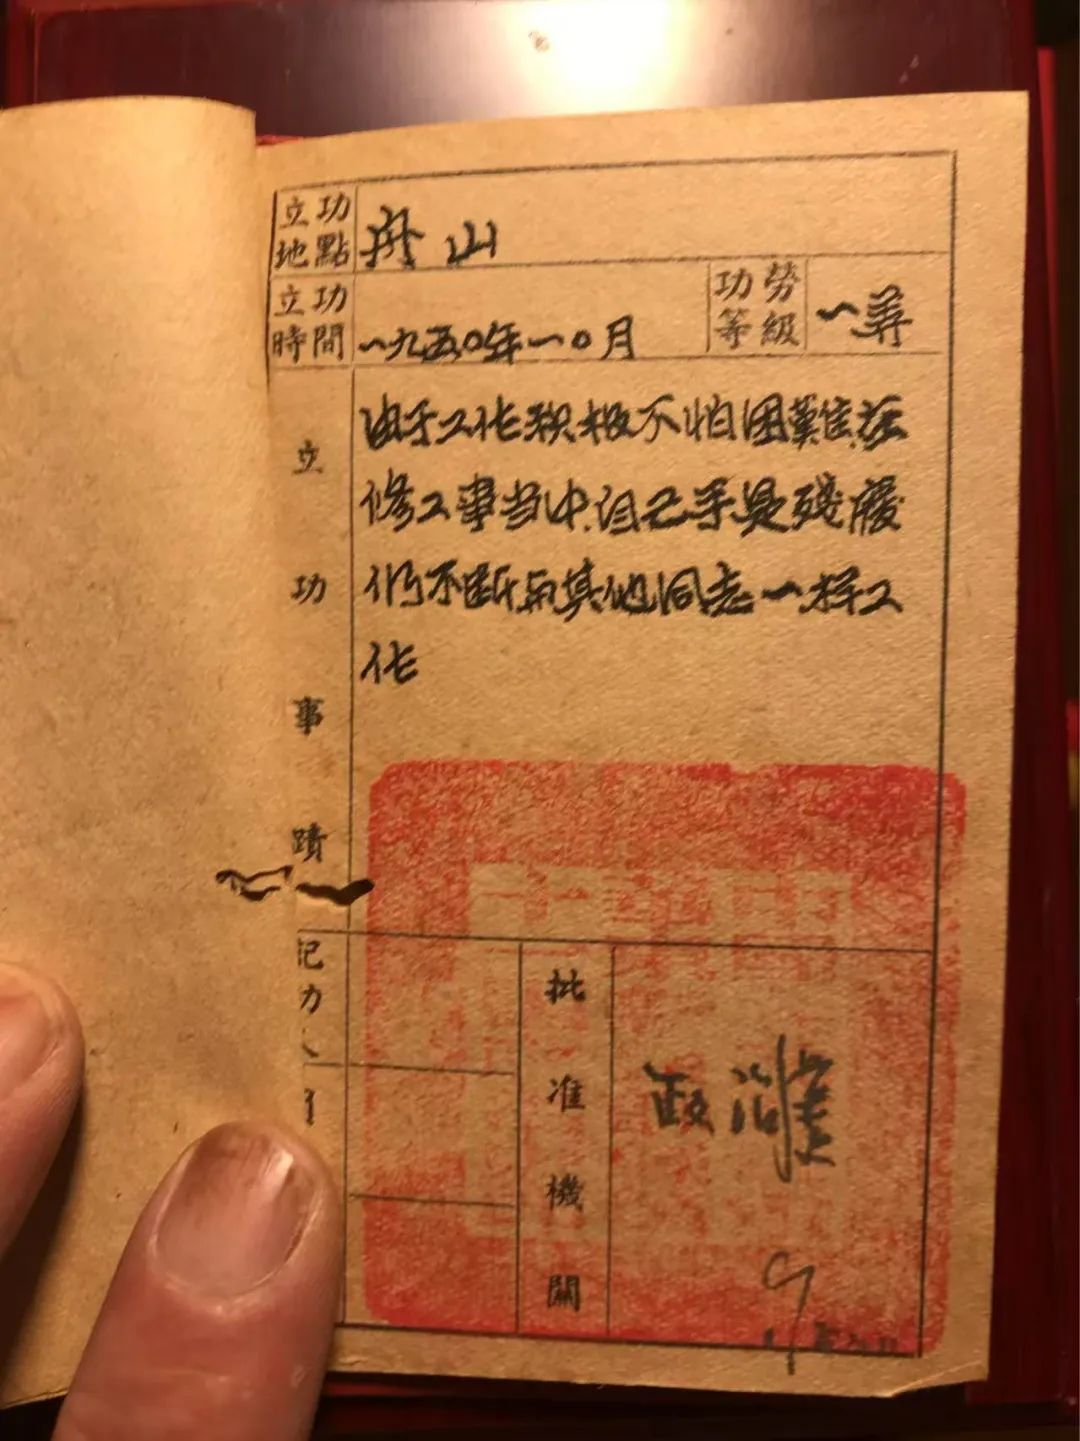 立功地點 舟山
立功時間 一九五〇年一〇月 功勞等級 一等
立功事蹟
由于工作积极不怕困難在
修工事当中自己手是殘廢
仍不断与其他同志一样工
作
記功人
批准機關